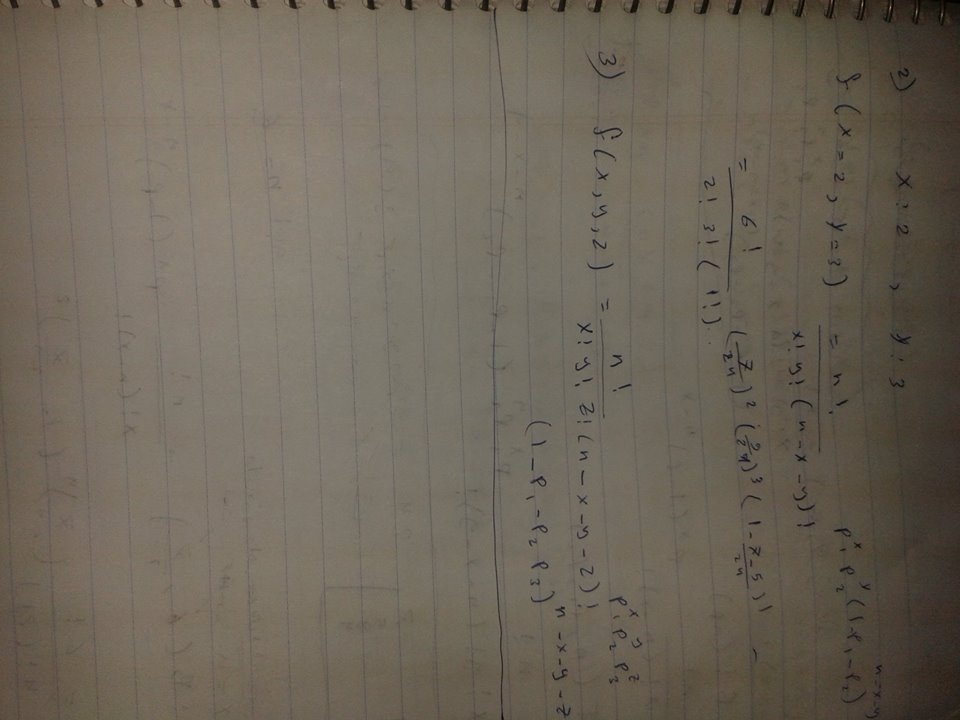 2) x : 2 , y : 3
f ( x = 2 , y = 3 ) = n! / x! y! ( n - x - y ) ! p₁^x p₂^y (1 - p₁ - p₂)^n-x-y
= 6! / 2! 3! ( 1! ) (7/24)^2 (5/24)^3 ( 1-7-5/24 )^1
3) f ( x , y , z ) = n! / x! y! z! ( n - x - y - z ) ! p₁^x p₂^y p₃^z
( 1 - p₁ - p₂ p₃ )^n-x-y-z